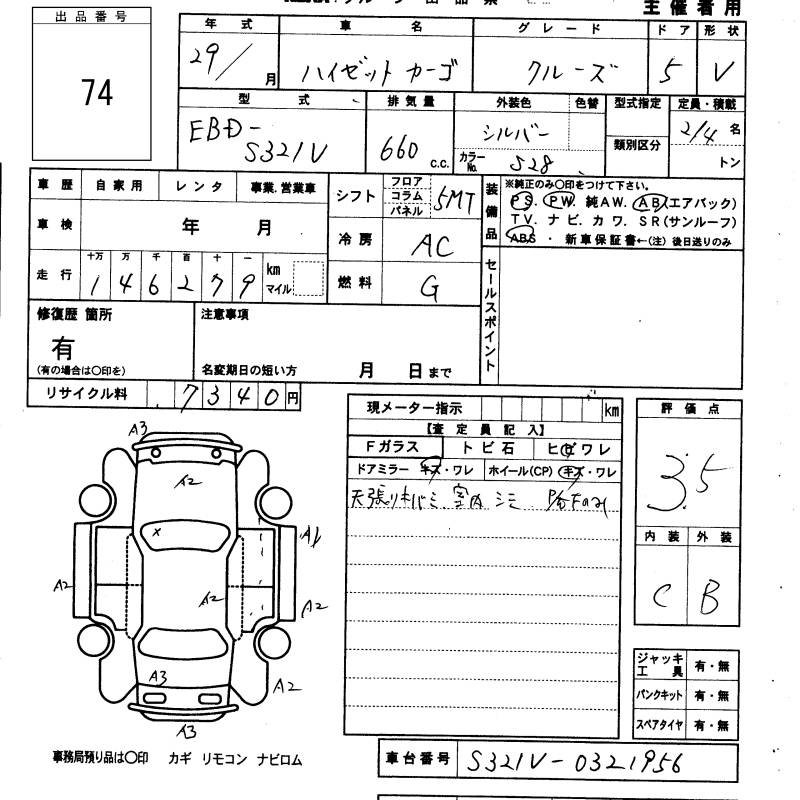 出品番号
74
主催者用
年式 車名 グレード ドア 形状
29/ 月 ハイゼット カーゴ クルーズ 5 V
型式 排気量 外装色 色替 型式指定 定員・積載
EBD-S321V 660 c.c. シルバー 類別区分 2/4 名
カラーNo. S28 トン
車歴 自家用 レンタ 事業.営業車
車検 年 月
走行 十万 万 千 百 十 一
146279 km マイル
シフト フロア コラム パネル 5MT
冷房 AC
燃料 G
装備品
※純正のみ○印をつけて下さい。
PS. PW. 純AW. AB(エアバック)
TV. ナビ. カワ. SR(サンルーフ)
ABS ・ 新車保証書←(注) 後日送りのみ
セールスポイント
修復歴 箇所 注意事項
有
(有の場合は○印を) 名変期日の短い方 月 日まで
リサイクル料 7340円
現メーター指示 km
【査定員記入】
Fガラス トビ石 ヒビワレ
ドアミラー キズ・ワレ ホイール(CP) キズ・ワレ
天張りキバミ 室内 シミ
評価点
3.5
内装 外装
C B
A3
A2
x
A1
A2 A2 A2
A3
A2
A3
ジャッキ工具 有・無
パンクキット 有・無
スペアタイヤ 有・無
事務局預り品は○印 カギ リモコン ナビロム
車台番号 S321V-0321956